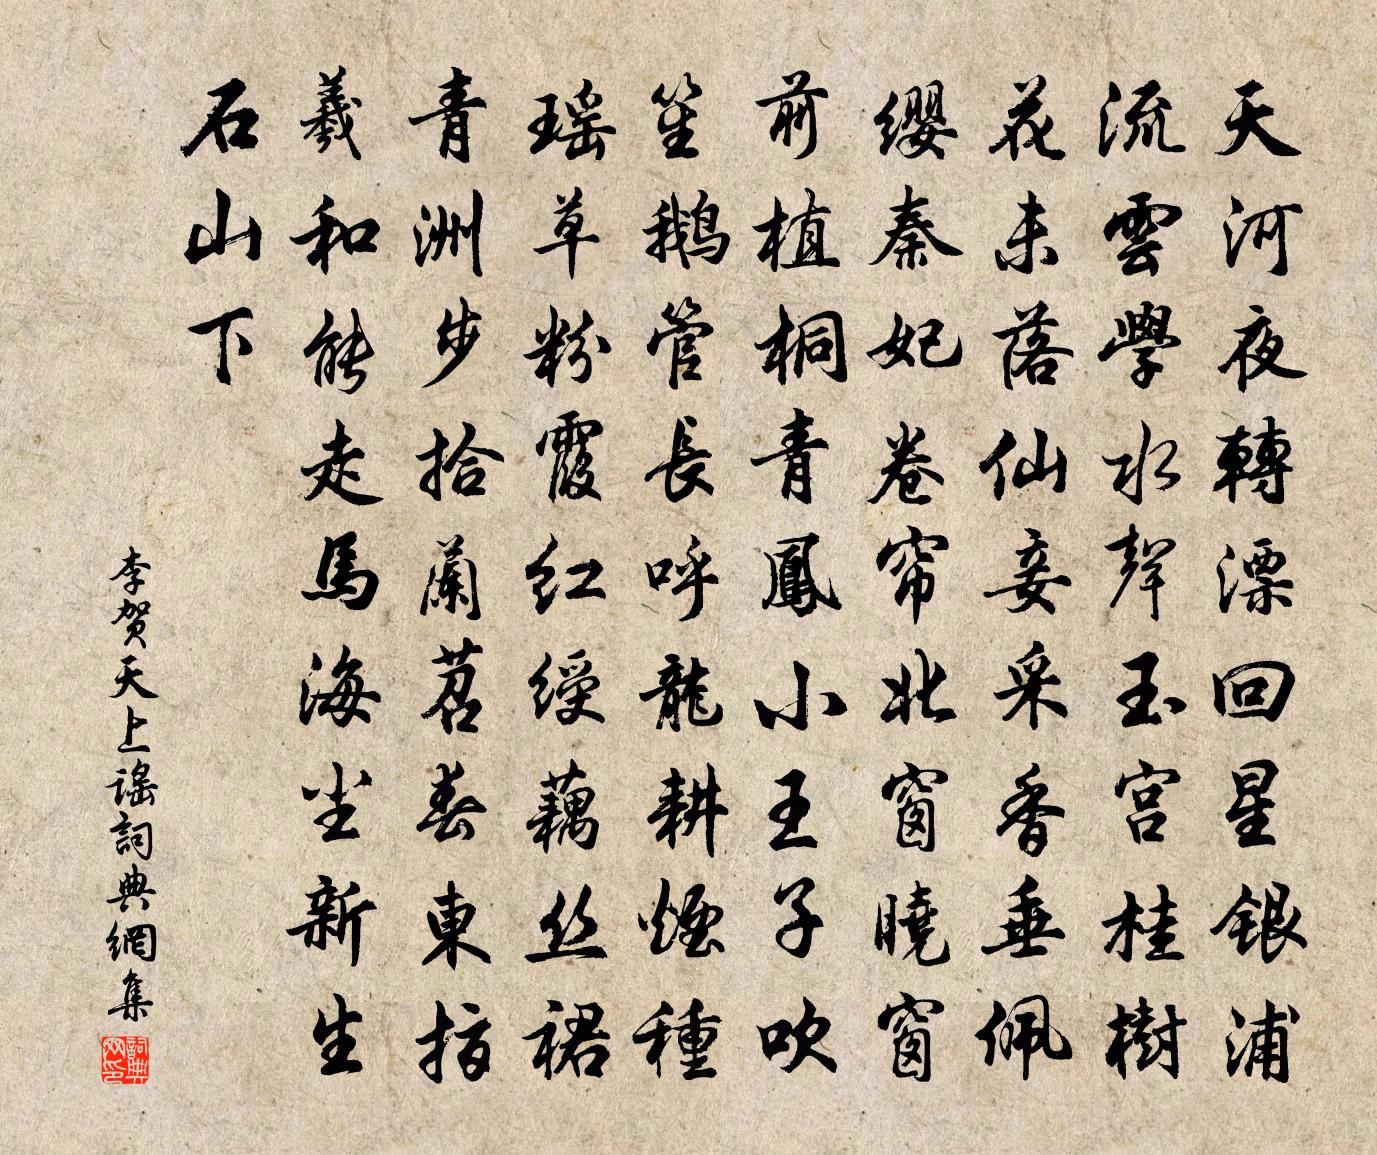 天河夜轉漂回星銀浦
流雲學水聲玉宮桂樹
花未落仙妾采香垂佩
纓秦妃卷帘北窗曉窗
前植桐青鳳小王子吹
笙鵝管長呼龍耕煙種
瑤草粉霞紅綬藕丝裙
青洲步拾蘭苕春東指
羲和能走馬海尘新生
石山下
李賀天上謠詞典網集
詞典网印